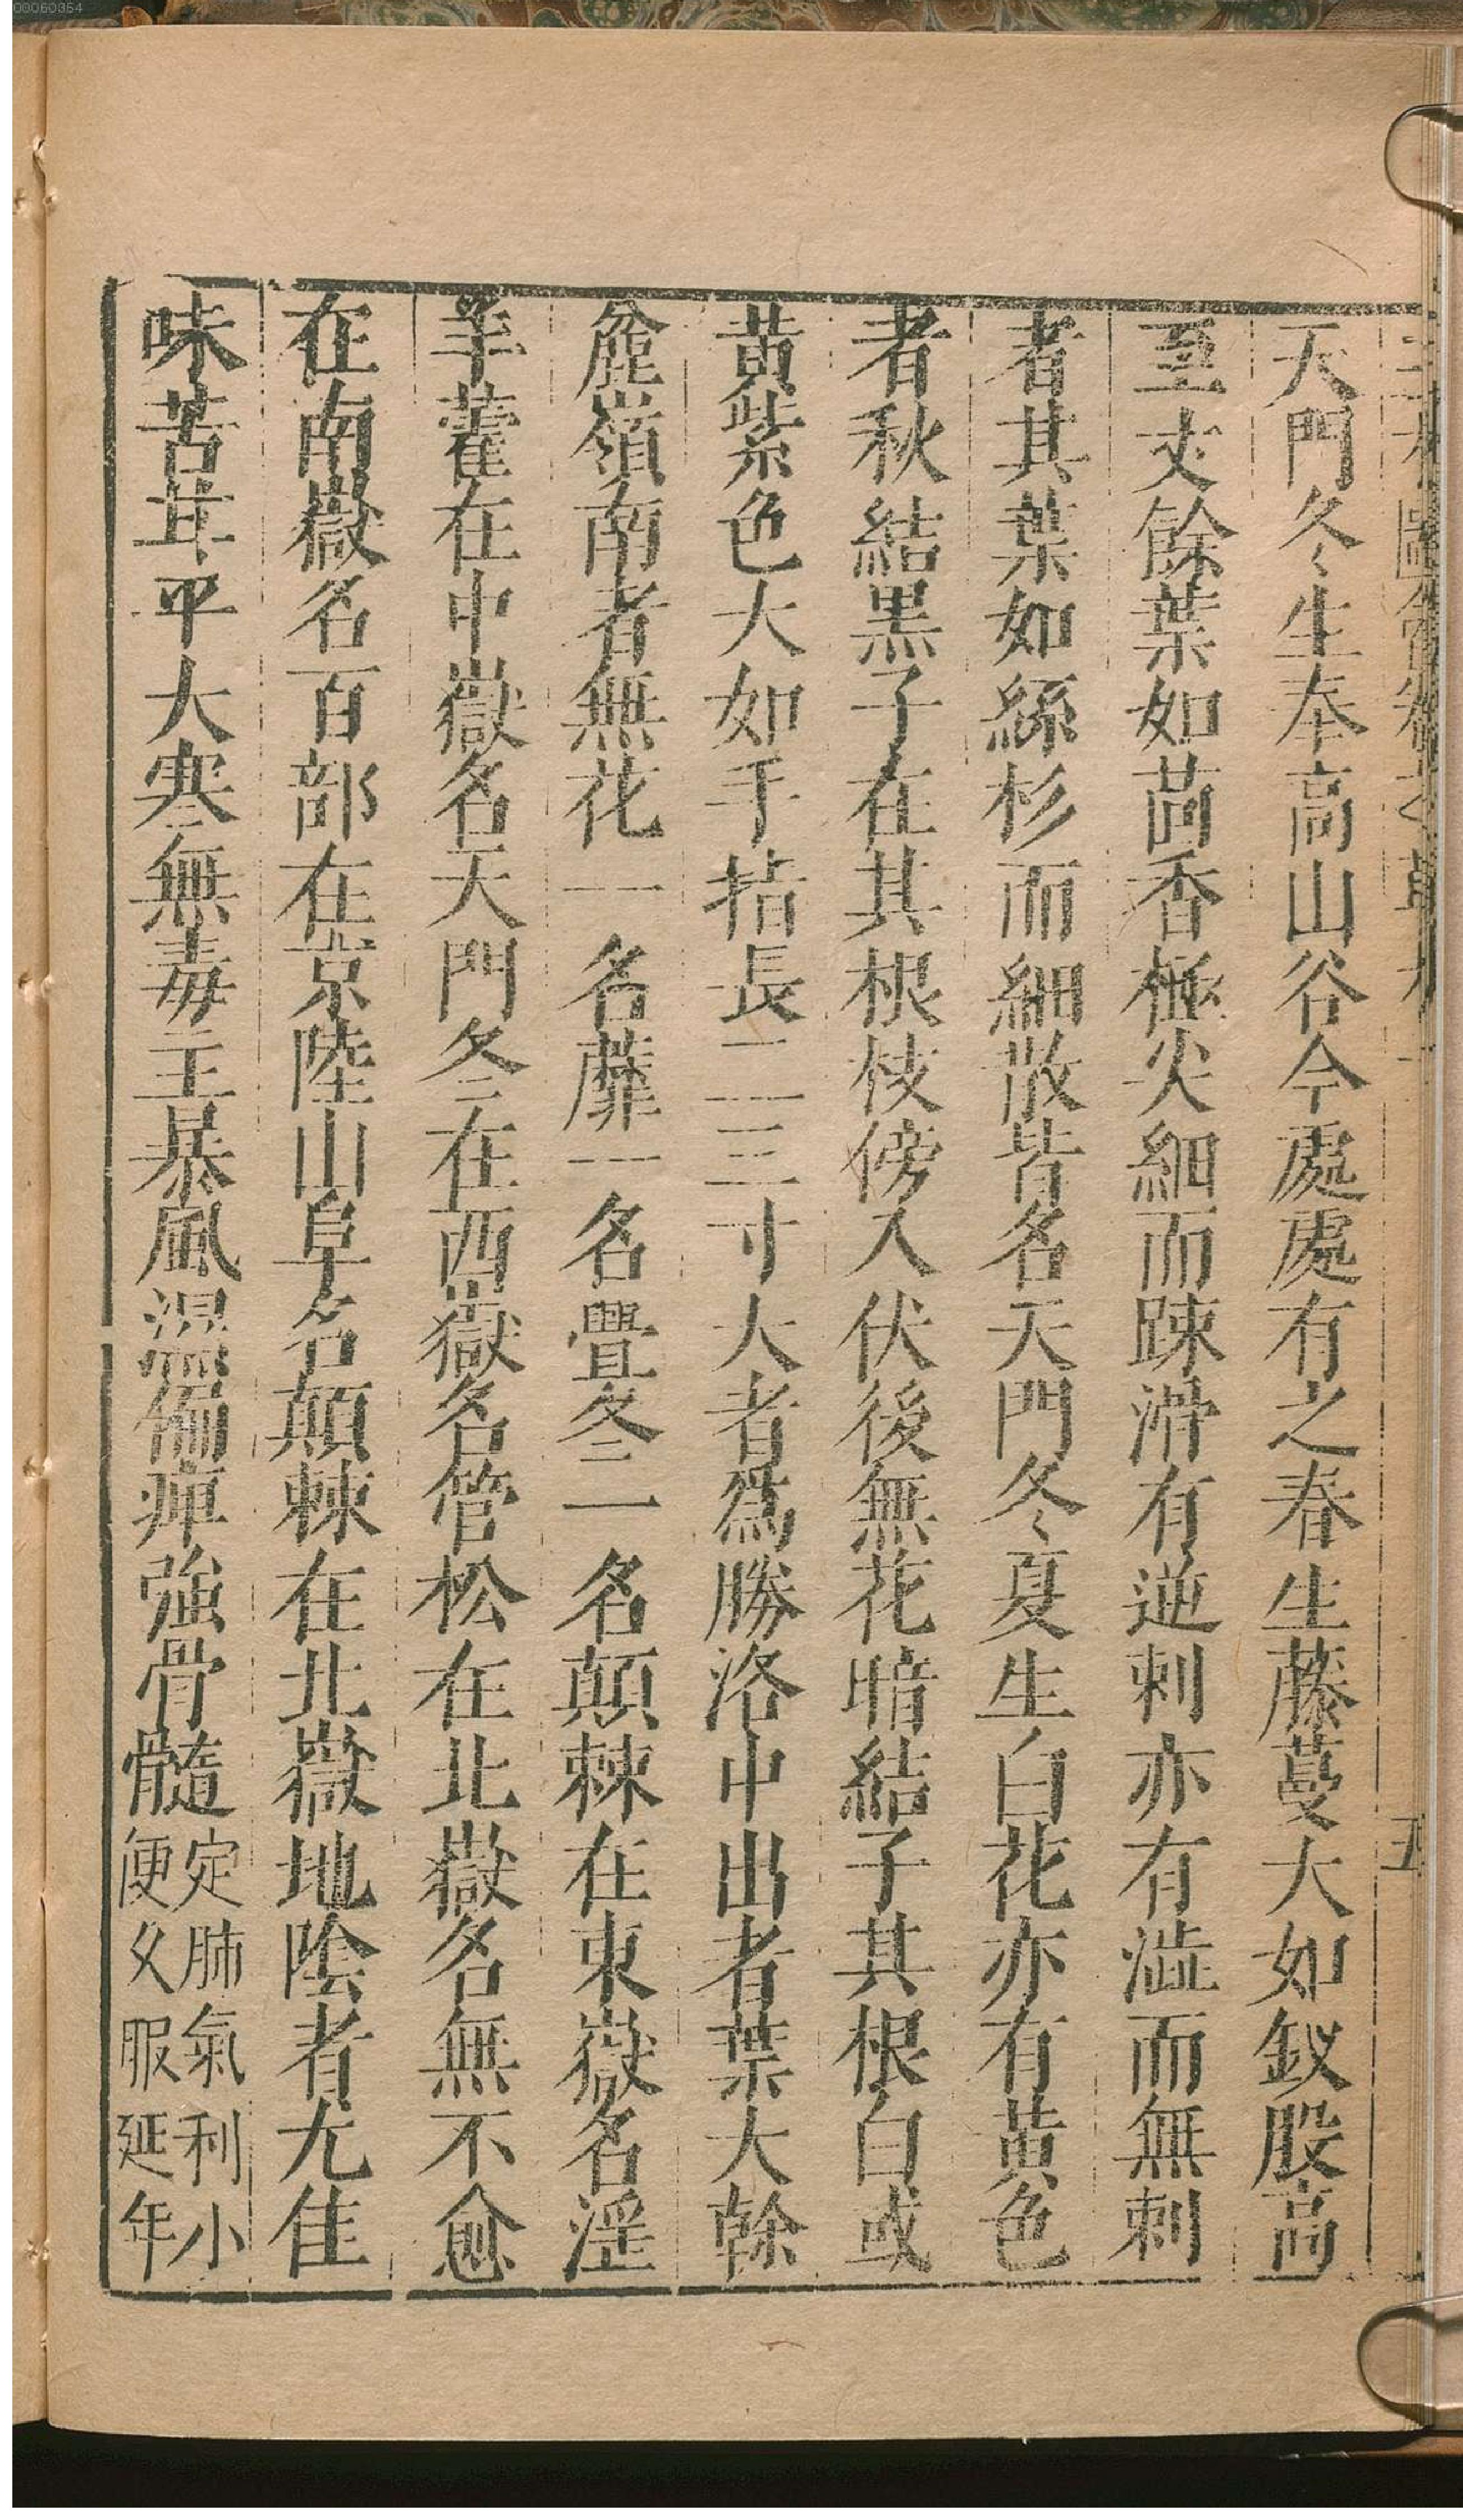 天門冬生奉高山谷今處處有之春生藤蔓大如釵股高
至丈餘葉如茴香極尖細而踈滑有逆刺亦有澁而無刺
者其葉如絲杉而細散皆名天門冬夏生白花亦有黄色
者秋結黒子在其根枝傍入伏後無花暗結子其根白或
黄紫色大如手指長二三寸大者爲勝洛中出者葉大幹
麄嶺南者無花一名蘼一名虋冬一名顛棘在東嶽名淫
羊藿在中嶽名天門冬在西嶽名管松在北嶽名無不愈
在南嶽名百部在京陸山阜名顛棘在北嶽地陰者尤佳
味苦甘平大寒無毒主暴風濕偏痺強骨髓定肺氣利小
便久服延年
五
00060354